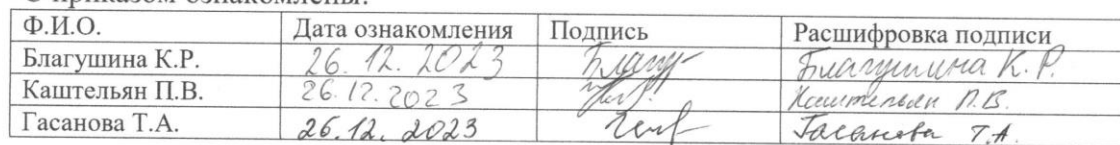 С приказом ознакомлены:
Ф.И.О. Дата ознакомления Подпись Расшифровка подписи
Благушина К.Р. 26.12.2023 Благу Благушина К.Р.
Каштельян П.В. 26.12.2023 Каштельян П.В.
Гасанова Т.А. 26.12.2023 Гасанова Т.А.